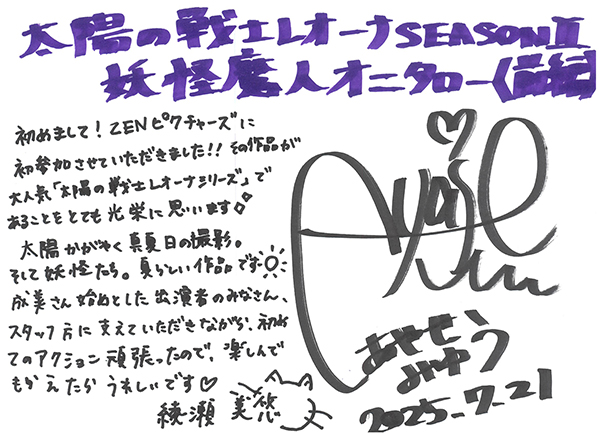 太陽の戦士レオーナSEASONⅡ
妖怪魔人オニタロー〈前編〉
初めまして！ZENピクチャーズに
初参加させていただきました!! その作品が
大人気「太陽の戦士レオーナシリーズ」で
あることをとても光栄に思います
太陽かがやく真夏日の撮影。
そして妖怪たち。夏らしい作品です
成美さん始めとした出演者のみなさん、
スタッフ方に支えていただきながら、初め
てのアクション頑張ったので、楽しんで
もらえたらうれしいです♡
綾瀬 美悠
Ayase
あやせ
みゆう
2025.7.21